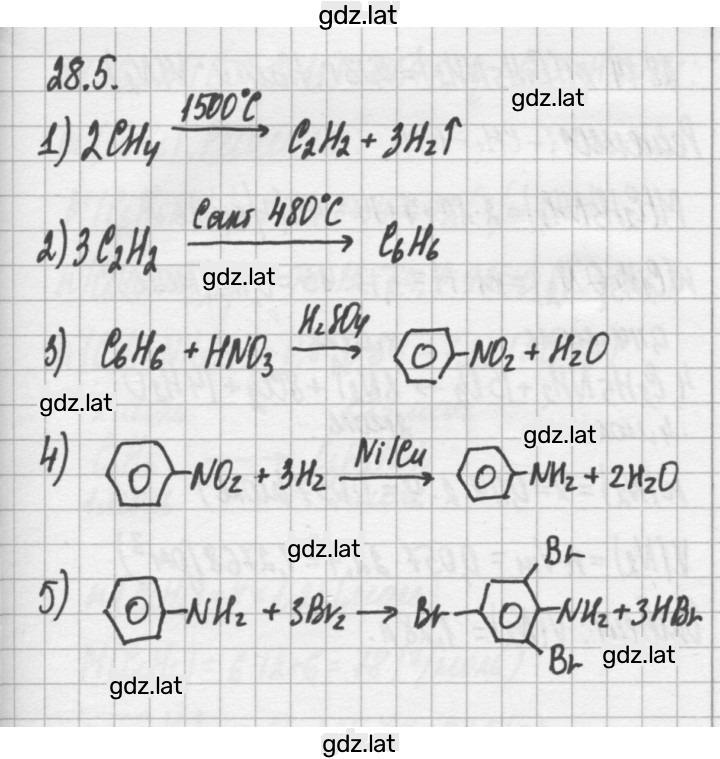 gdz.lat
28.5.
gdz.lat
1) 2CH₄ 1500°C → C₂H₂ + 3H₂↑
2) 3C₂H₂ Cакт 480°C → C₆H₆
gdz.lat
3) C₆H₆ + HNO₃ H₂SO₄ → -NO₂ + H₂O
gdz.lat
gdz.lat
4) -NO₂ + 3H₂ Ni/Cu → -NH₂ + 2H₂O
gdz.lat
Br
5) -NH₂ + 3Br₂ → Br- -NH₂ + 3HBr
Br
gdz.lat
gdz.lat
gdz.lat